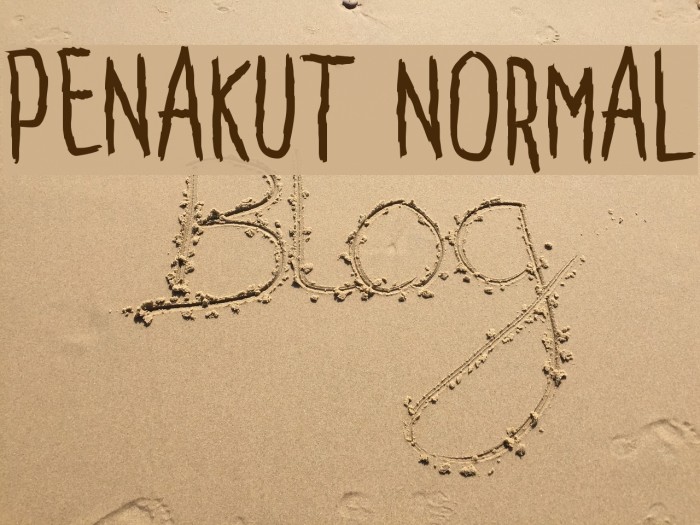 PENAKUT NORMAL
Blog